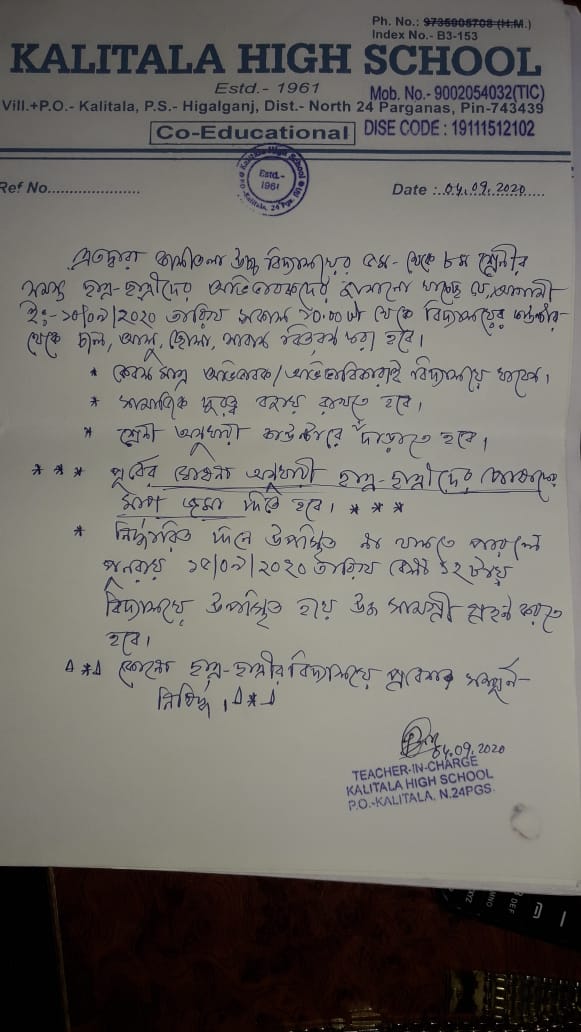 Ph. No.: 9735908708 (H.M.)
Index No.- B3-153
KALITALA HIGH SCHOOL
Estd.- 1961
Mob. No.- 9002054032(TIC)
Vill.+P.O.- Kalitala, P.S.- Higalganj, Dist.- North 24 Parganas, Pin-743439
Co-Educational
DISE CODE : 19111512102
Kalitala High School
Estd.-
1961
Kalitala, 24 Pgs. (N)
Ref No.....................
Date :..04.09.2020.....
এতদ্বারা কালীতলা উচ্চ বিদ্যালয়ের ৫ম- থেকে ৮ম শ্রেণীর
সমস্ত ছাত্র-ছাত্রীদের অভিভাবকদের জানানো যাচ্ছে যে, আগামী
ইং:- /০৯/২০২০ তারিখ সকাল ১০:০০ টা থেকে বিদ্যালয়ের
থেকে চাল, আলু, ছোলা, সাবান বিতরণ করা হবে।
* কেবল মাত্র অভিভাবক/অভিভাবিকারাই বিদ্যালয়ে আসবেন।
* সামাজিক দূরত্ব বজায় রাখতে হবে।
* শ্রেণী অনুযায়ী কাউন্টারে দাঁড়াতে হবে।
* * * পূর্বের ঘোষনা অনুযায়ী ছাত্র-ছাত্রীদের পোষাকের
মাপ জমা দিতে হবে। * * *
* নির্দ্ধারিত দিনে উপস্থিত না থাকতে পারলে
পুনরায় ১৫/০৯/২০২০ তারিখ বেলা ১২ টায়
বিদ্যালয়ে উপস্থিত হয়ে উক্ত সামগ্রী গ্রহন করতে
হবে।
Δ*Δ কোনো ছাত্র-ছাত্রীর বিদ্যালয়ে প্রবেশ সম্পূর্ন-
নিষিদ্ধ। Δ*Δ
04.09.2020
TEACHER-IN-CHARGE
KALITALA HIGH SCHOOL
P.O.-KALITALA, N.24PGS.